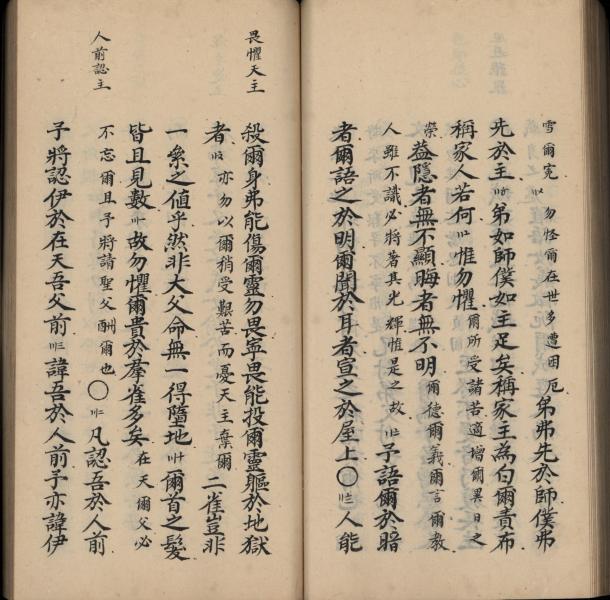 雪爾寃勿怪爾在世多遭困厄弟弗先於師僕弗
先於主弟如師僕如主足矣稱家主為白爾責布
稱家人若何惟勿懼爾所受諸苦適增爾異日之
榮益隱者無不顯晦者無不明爾德爾義爾言爾教
人雖不識必將著其光輝惟是之故予語爾於暗
者爾語之於明爾聞於耳者宣之於屋上〇人能
畏懼天主
殺爾身弗能傷爾靈勿畏寧畏能投爾靈軀於地獄
者亦勿以爾稍受艱苦而憂天主棄爾二雀豈非
一絫之値乎然非大父命無一得墮地爾首之髮
皆且見數故勿懼爾貴於羣雀多矣在天爾父必
不忘爾且予將請聖父酬爾也〇凡認吾於人前
人前認主
子將認伊於在天吾父前諱吾於人前予亦諱伊